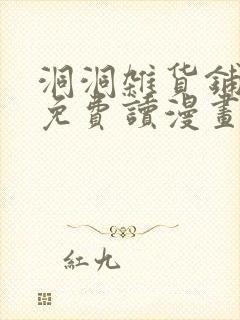 洞洞雜貨鋪
免費讀漫畫
紅九